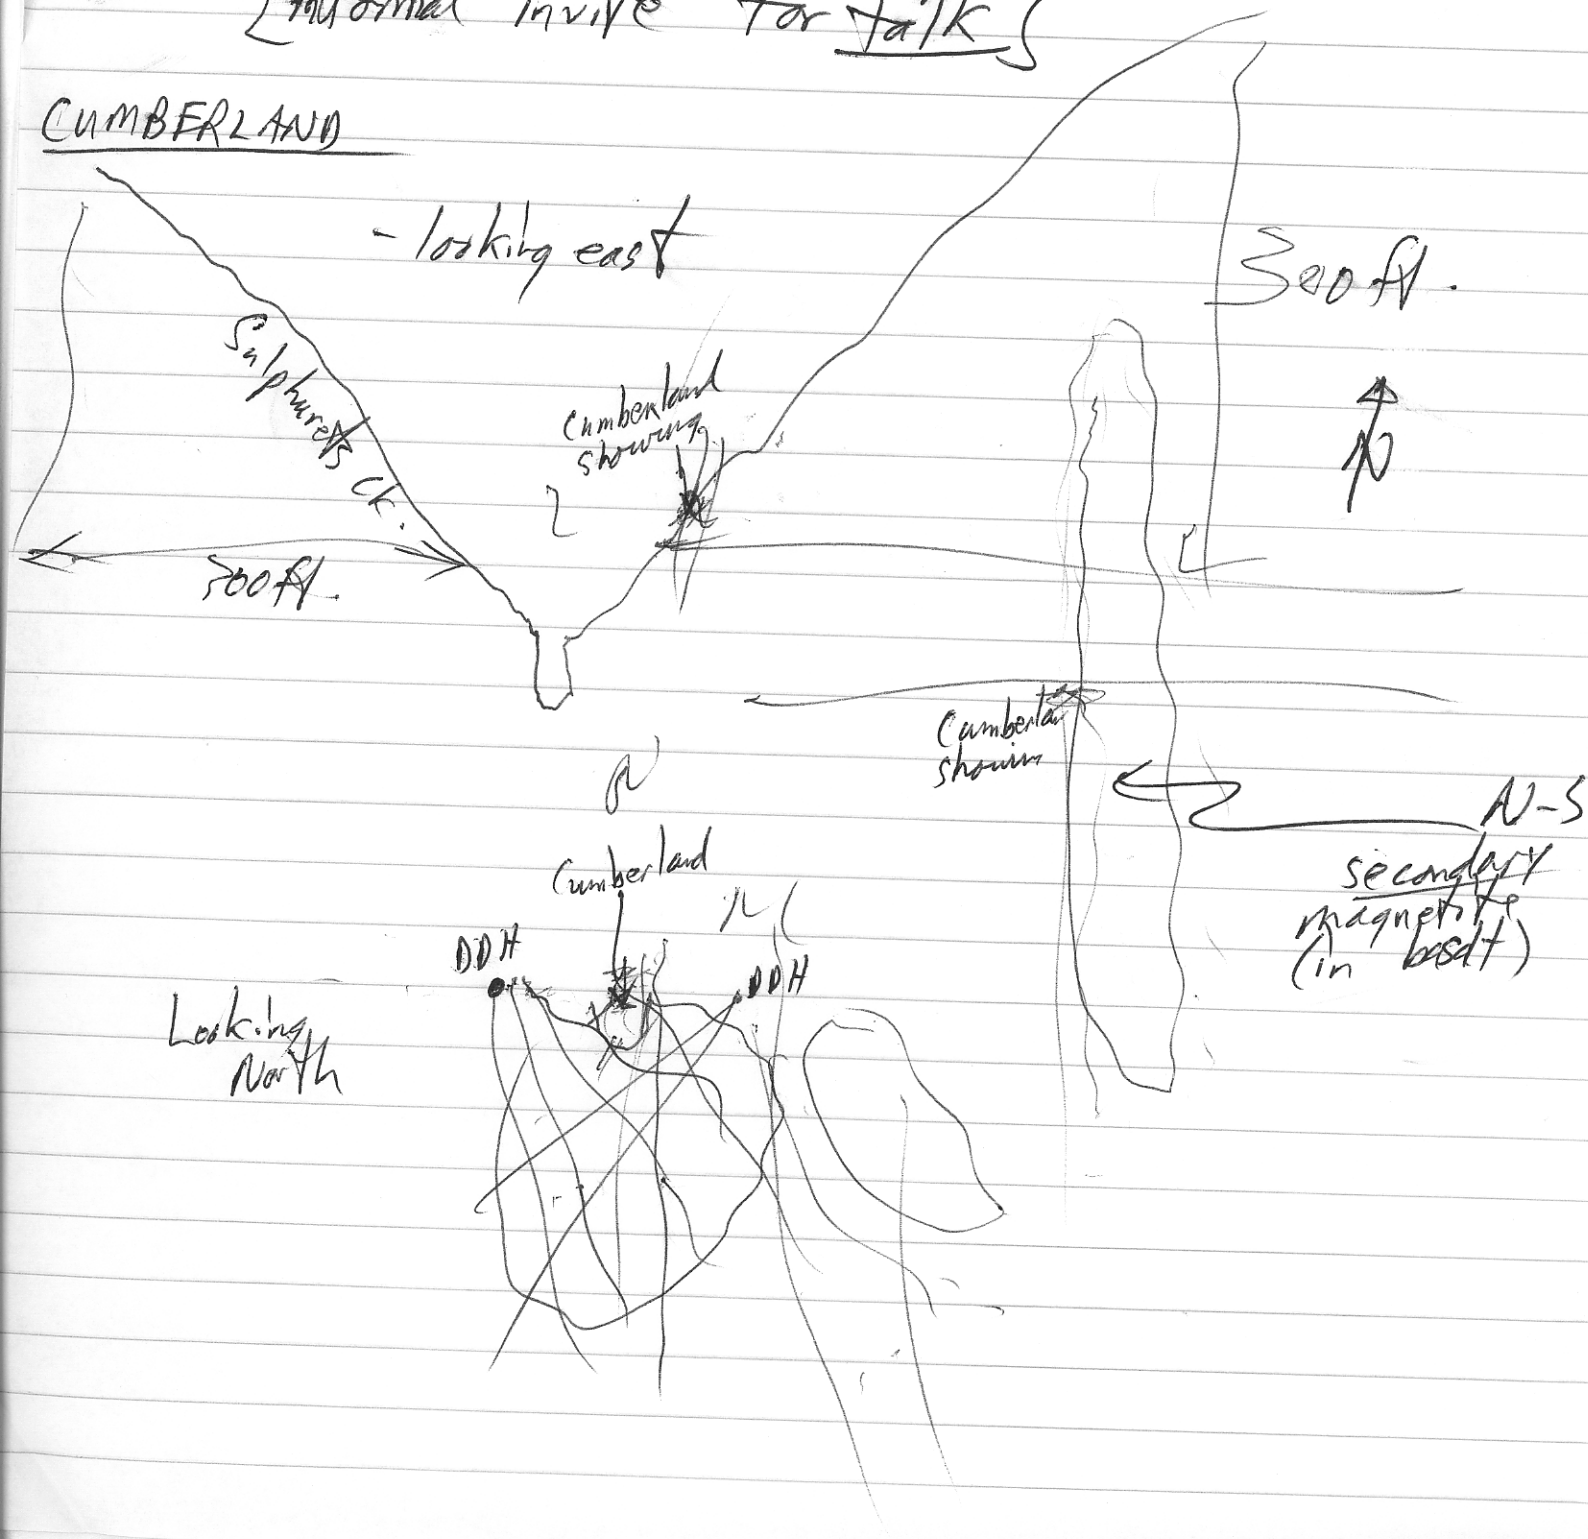 [Informal invite for talk]
CUMBERLAND
- looking east
300 ft.
Sulphurets Ck.
Cumberland
showing
N
300 ft.
Cumberlan
showin
N-S
secondary
magnetite
(in basalt)
Cumberland
DDH
DDH
Looking
North